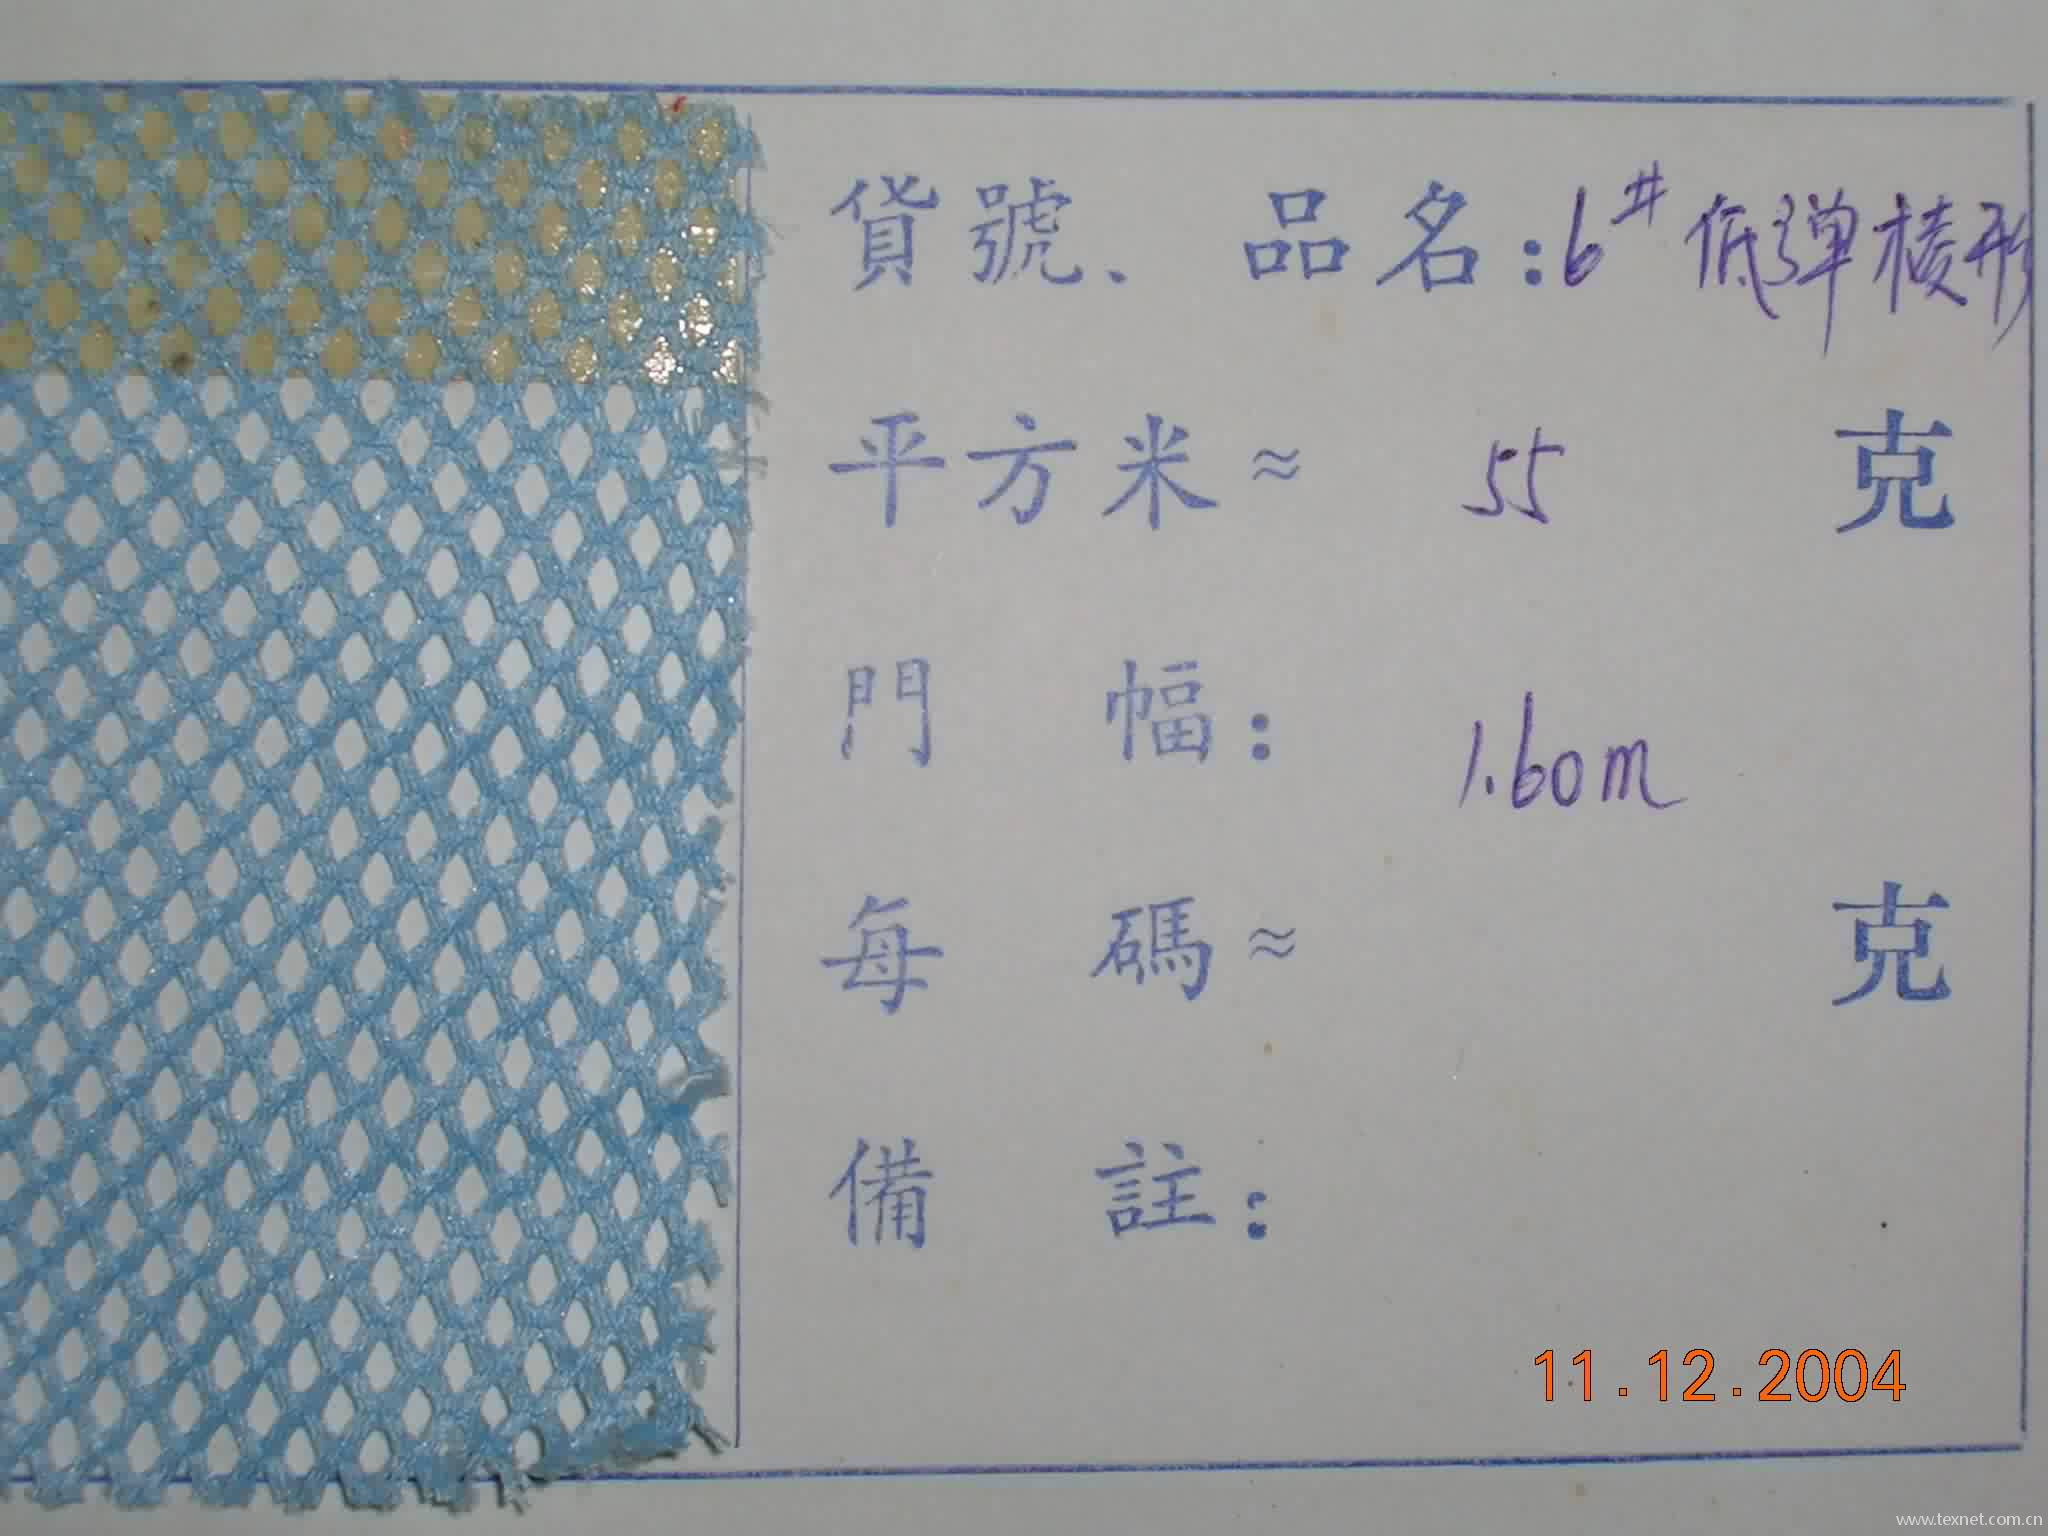 貨號、品名:6# 低弹棱形
平方米≈ 55 克
門幅: 1.60m
每碼≈ 克
備註:
11.12.2004
www.texnet.com.cn